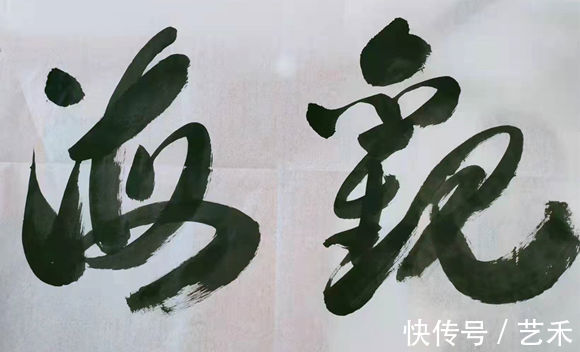 觀海
快传号 / 艺禾